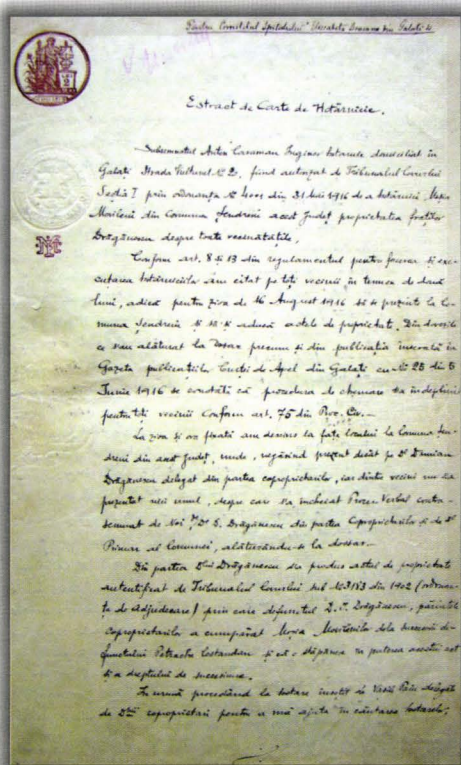 Pentru Comitetul Spitalului "Elisabeta Doamna" din Galați
Estract de Carte de Hotărnicie.
Subsemnatul Anton Caraman Inginer hotarnic domiciliat în
Galați Strada Vulturul No 2, fiind autorizat de Tribunalul Covurlui
Secția I prin din 31 1916 de a hotărnici Moșia
Moileni din Comuna Șendreni acest județ proprietatea fraților
Drăgănescu despre toate vecinătățile,
Conform art. 8 și 13 din regulamentul pentru formar și exe-
cutarea hotărniciilor am citat pe toți vecinii în termen de două
luni, adică pentru ziua de 16 August 1916 să se prezinte la Co-
muna Șendreni și să-și aducă actele de proprietate. Din dovezile
ce s'au alăturat la Dosar precum și din publicația inserată în
Gazeta publicațiilor Curții de Apel din Galați cu No 25 din 5
Iunie 1916 se constată că procedura de chemare s'a îndeplinit
pentru toți vecinii Conform art. 75 din Proc. Civ.—
La ziua și ora fixată am descins la fața locului la Comuna Șen-
dreni din acest județ, unde, negăsind prezent decât pe Dl Damian
Drăgănescu delegat din partea coproprietarilor, iar dintre vecini nu s'a
prezentat nici unul, despre care s'a încheiat Proces Verbal contra-
semnat de Noi, Dl D. Drăgănescu din partea Coproprietarilor și de Dl
Primar al Comunei, alăturându-se la dosar.—
Din partea Dlui Drăgănescu s'a produs actul de proprietate
autentificat de Tribunalul Covurlui sub No 3183 din 1902 (ordonan-
ța de Adjudecare) prin care defunctul D. C. Drăgănescu, părintele
coproprietarilor a cumpărat Moșia dela succesorii de-
functului Petrache Costandan și că o stăpânea în puterea acestui act
și a dreptului de succesiune.
În urmă procedând la hotare însoțit de Vasile delegat
de Dnii coproprietari pentru a mă ajuta în căutarea hotarelor,